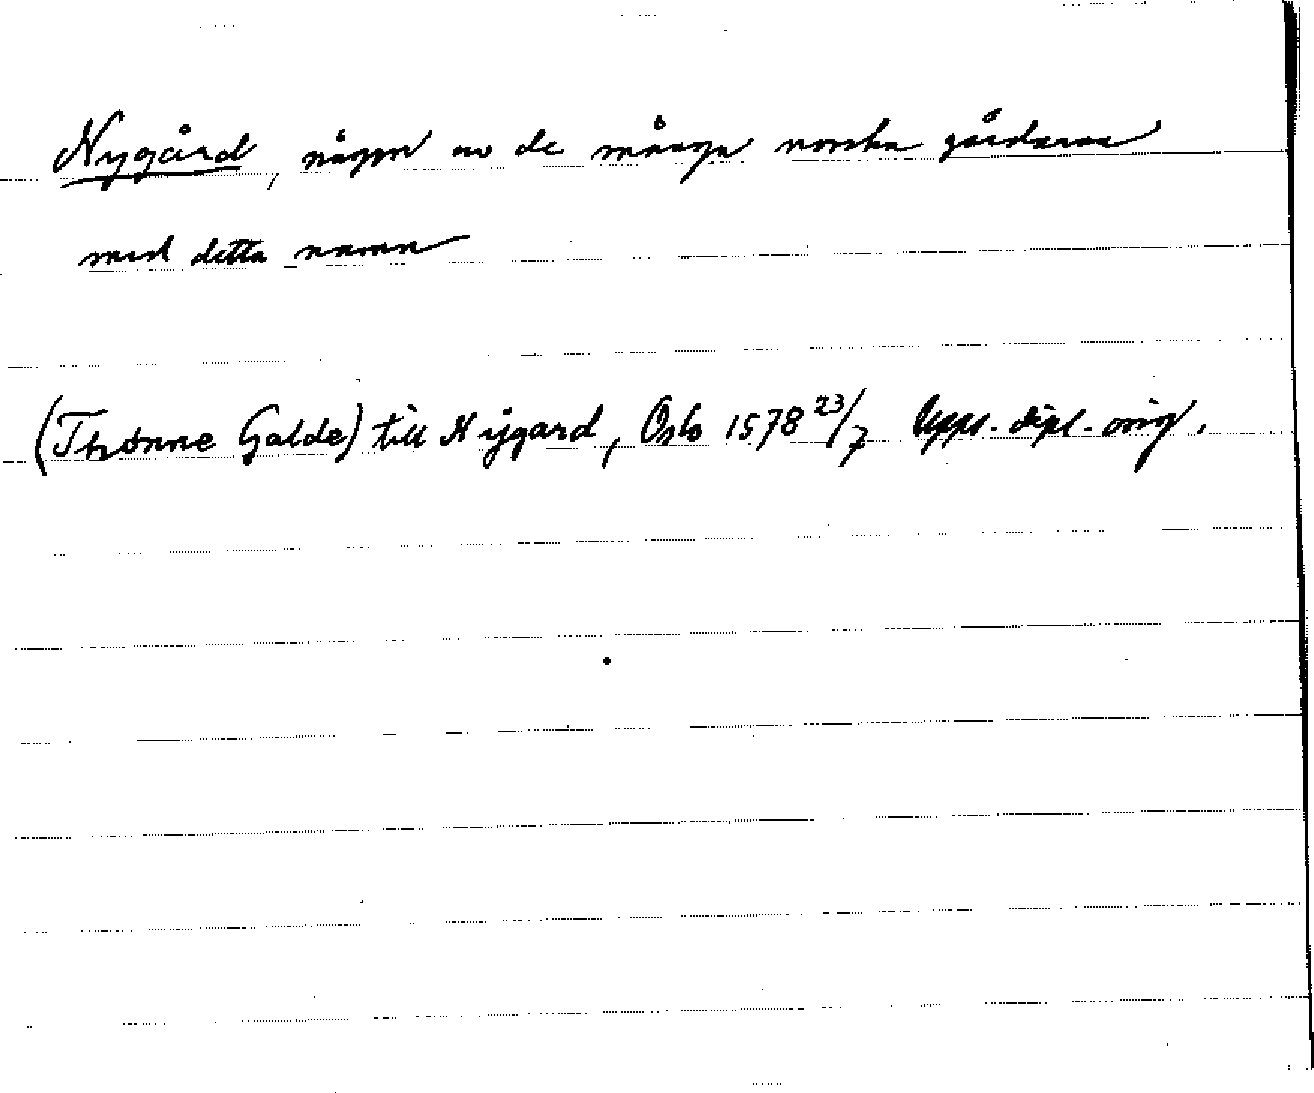 Nygård, någon av de många norska gårdarna
med detta namn
(Thønne Galde) till Nÿgard, Oslo 1578 23/7 Upps. dipl. orig.